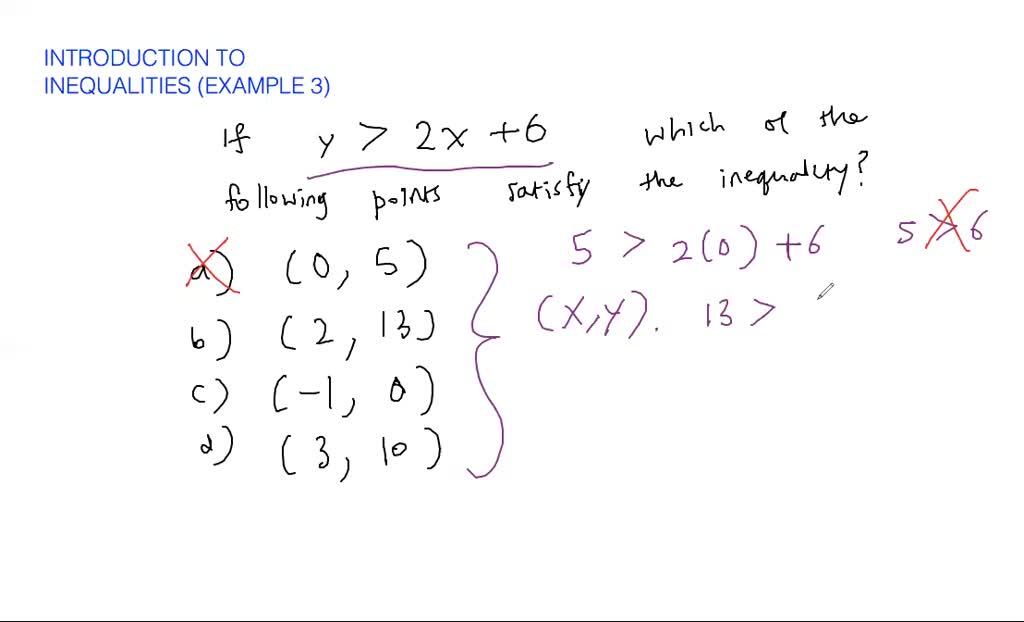 INTRODUCTION TO
INEQUALITIES (EXAMPLE 3)
If y > 2x +6 which of the
following points satisfy the inequality?
a) (0, 5) 5 > 2(0) +6 5 > 6
b) (2, 13) (x,y). 13 >
c) (-1, 0)
d) (3, 10)